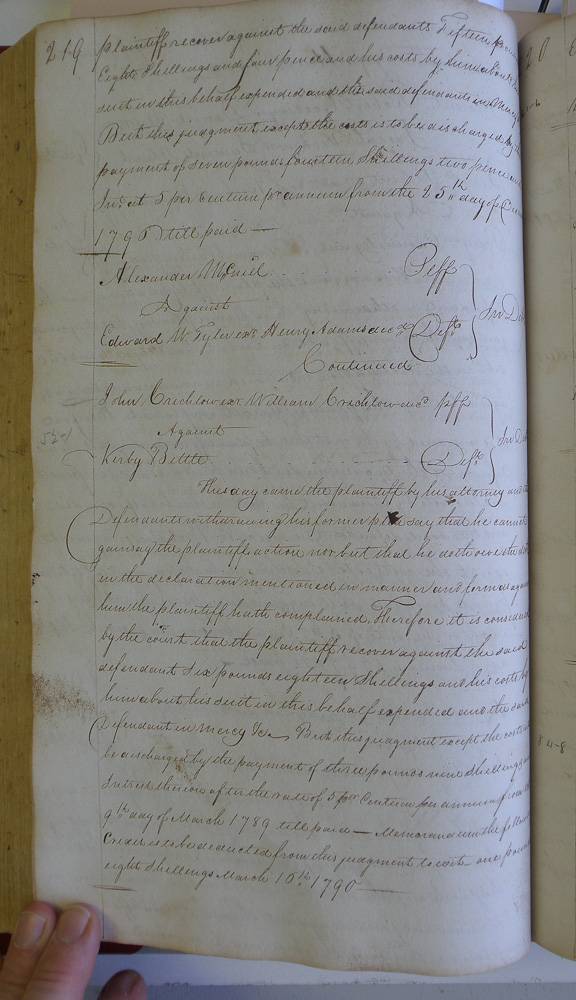 219 plaintiff recover against the said defendants Fifteen
Eight Shillings and four pence and his costs by him about
suit in this behalf expended and the said defendants in mercy
But this judgment except the costs is to be discharged by
payment of seven pounds fourteen Shillings two pence
Int at 5 per Centum pr annum from the 25th day of
1796 till paid —
Alexander Mcniel Plff
Against In De
Edward W Tyler exr Henry Adams decd Deft
Continued
John Crichlow exr William Crichlow decd plff
Against In De
Kerby Bittle Deft
This day came the plaintiff by his attorney and
Defendants withdrawing his former plea say that he cannot
gainsay the plaintiff action nor but that he doth owe the de
in the declaration mentioned in manner and form as again
him the plaintiff hath complained Therefore it is consider
by the court that the plaintiff recover against the said
defendant Six pounds eighteen Shillings and his costs by
him about his suit in this behalf expended and the said
Defendant in mercy &c But this judgment except the costs
be discharged by the payment of three pounds nine Shillings
Intrest thereon after the rate of 5 per Centum per annum from
9th day of March 1789 till paid — Memorandum the follow
Credit is to be deducted from this judgment to wit one poun
eight Shillings March 10th 1790 —